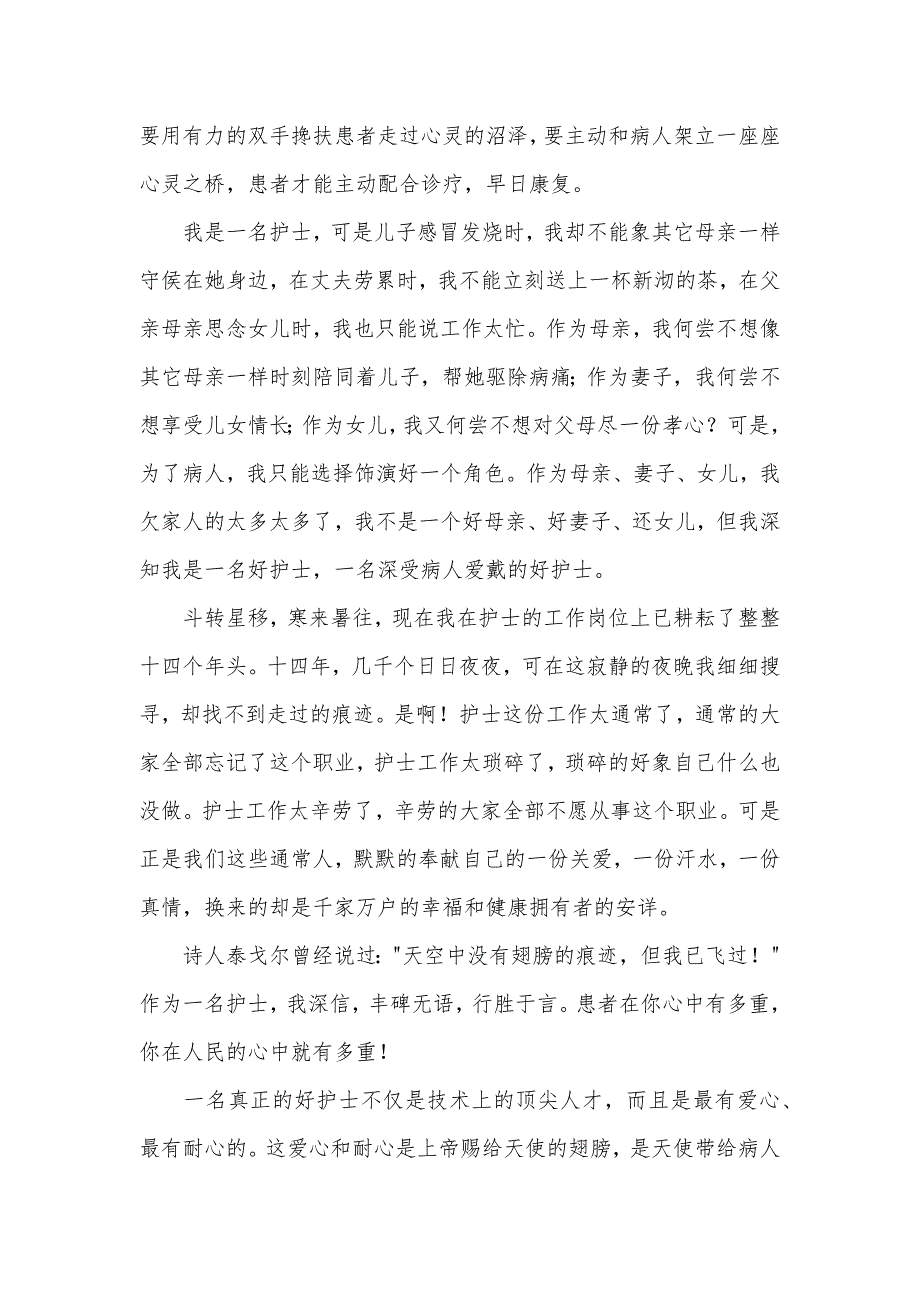 要用有力的双手搀扶患者走过心灵的沼泽，要主动和病人架立一座座
心灵之桥，患者才能主动配合诊疗，早日康复。
我是一名护士，可是儿子感冒发烧时，我却不能象其它母亲一样
守侯在她身边，在丈夫劳累时，我不能立刻送上一杯新沏的茶，在父
亲母亲思念女儿时，我也只能说工作太忙。作为母亲，我何尝不想像
其它母亲一样时刻陪同着儿子，帮她驱除病痛；作为妻子，我何尝不
想享受儿女情长；作为女儿，我又何尝不想对父母尽一份孝心？可是，
为了病人，我只能选择饰演好一个角色。作为母亲、妻子、女儿，我
欠家人的太多太多了，我不是一个好母亲、好妻子、还女儿，但我深
知我是一名好护士，一名深受病人爱戴的好护士。
斗转星移，寒来暑往，现在我在护士的工作岗位上已耕耘了整整
十四个年头。十四年，几千个日日夜夜，可在这寂静的夜晚我细细搜
寻，却找不到走过的痕迹。是啊！护士这份工作太通常了，通常的大
家全部忘记了这个职业，护士工作太琐碎了，琐碎的好象自己什么也
没做。护士工作太辛劳了，辛劳的大家全部不愿从事这个职业。可是
正是我们这些通常人，默默的奉献自己的一份关爱，一份汗水，一份
真情，换来的却是千家万户的幸福和健康拥有者的安详。
诗人泰戈尔曾经说过："天空中没有翅膀的痕迹，但我已飞过！"
作为一名护士，我深信，丰碑无语，行胜于言。患者在你心中有多重，
你在人民的心中就有多重！
一名真正的好护士不仅是技术上的顶尖人才，而且是最有爱心、
最有耐心的。这爱心和耐心是上帝赐给天使的翅膀，是天使带给病人